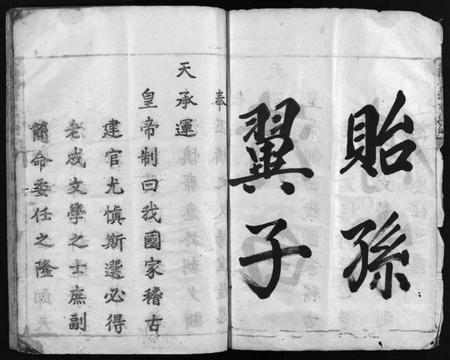 貽孫
翼子
奉
天承運
皇帝制曰我國家稽古
建官尤慎斯選必得
老成文學之士庶副
簡命委任之隆